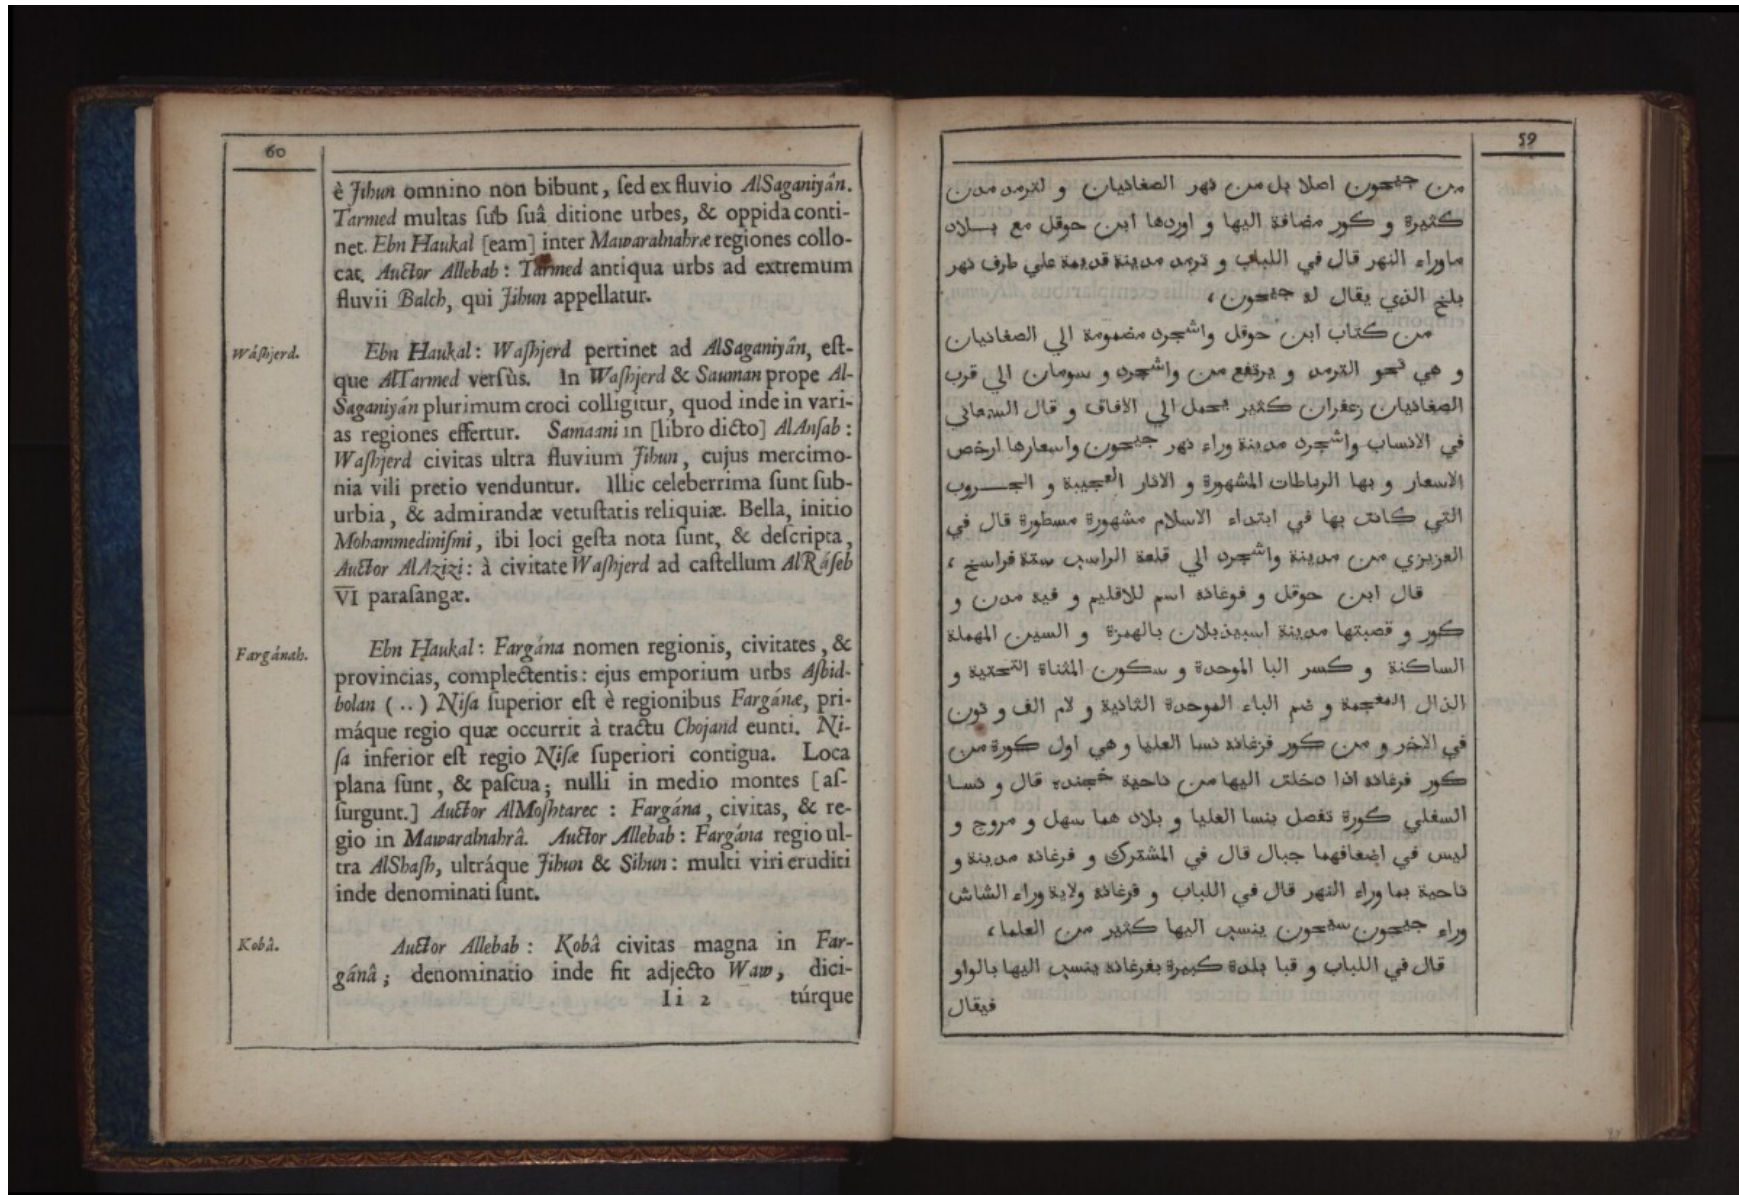 60
è Jihun omnino non bibunt, ſed ex fluvio AlSaganiyân.
Tarmed multas ſub ſuâ ditione urbes, & oppida conti-
net. Ebn Haukal [eam] inter Mawaralnahræ regiones collo-
cat. Auctor Allebab : Tarmed antiqua urbs ad extremum
fluvii Balch, qui Jihun appellatur.
Wáſhjerd.
Ebn Haukal : Waſhjerd pertinet ad AlSaganiyân, eſt-
que AlTarmed verſùs. In Waſhjerd & Sauman prope Al-
Saganiyán plurimum croci colligitur, quod inde in vari-
as regiones effertur. Samaani in [libro dicto] AlAnſab :
Waſhjerd civitas ultra fluvium Jihun, cujus mercimo-
nia vili pretio venduntur. Illic celeberrima ſunt ſub-
urbia, & admirandæ vetuſtatis reliquiæ. Bella, initio
Mohammediniſmi, ibi loci geſta nota ſunt, & deſcripta,
Auctor AlAzizi : à civitate Waſhjerd ad caſtellum AlRáſeb
VI paraſangæ.
Fargánah.
Ebn Haukal : Fargána nomen regionis, civitates, &
provincias, complectentis : ejus emporium urbs Aſbid-
bolan ( .. ) Niſa ſuperior eſt è regionibus Fargánæ, pri-
máque regio quæ occurrit à tractu Chojand eunti. Ni-
ſa inferior eſt regio Niſæ ſuperiori contigua. Loca
plana ſunt, & paſcua ; nulli in medio montes [aſ-
ſurgunt.] Auctor AlMoſhtarec : Fargána, civitas, & re-
gio in Mawaralnahrâ. Auctor Allebab : Fargána regio ul-
tra AlShaſh, ultráque Jihun & Sihun : multi viri eruditi
inde denominati ſunt.
Kobâ.
Auctor Allebab : Kobâ civitas magna in Far-
gánâ ; denominatio inde fit adjecto Waw, dici-
Ii 2 túrque
59
من جيحون اصلا بل من نهر الصغانيان و لترمد مدن
كثيرة و كور مضافة اليها و اوردها ابن حوقل مع بــلاد
ماوراء النهر قال في اللباب و ترمد مدينة قديمة علي طرف نهر
بلخ الذي يقال له جيحون ،
من كتاب ابن حوقل واشجرد مضمومة الي الصغانيان
و هي نحو الترمد و يرتفع من واشجرد و سومان الي قرب
الصغانيان زعفران كثير يحمل الي الافاق و قال السمعاني
في الانساب واشجرد مدينة وراء نهر جيحون واسعارها ارخص
الاسعار و بها الرباطات المشهورة و الاثار العجيبة و الحــروب
التي كانت بها في ابتداء الاسلام مشهورة مسطورة قال في
العزيزي من مدينة واشجرد الي قلعة الراسب ستة فراسخ ،
قال ابن حوقل و فرغانه اسم للاقليم و فيه مدن و
كور و قصبتها مدينة اسبيذبلان بالهمزة و السين المهملة
الساكنة و كسر البا الموحدة و سكون المثناة التحتية و
الذال المعجمة و ضم الباء الموحدة الثانية و لام الف و نون
في الاخر و من كور فرغانه نسا العليا و هي اول كورة من
كور فرغانه اذا دخلت اليها من ناحية خجنده قال و نســا
السفلي كورة تتصل بنسا العليا و بلاد هما سهل و مروج و
ليس في اضعافهما جبال قال في المشترك و فرغانه مدينة و
ناحية بما وراء النهر قال في اللباب و فرغانه ولاية وراء الشاش
وراء جيحون سيحون ينسب اليها كثير من العلما ،
قال في اللباب و قبا بلدة كبيرة بفرغانه ينسب اليها بالواو
فيقال